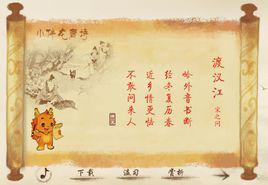 渡汉江
宋之问
岭外音书断
经冬复历春
近乡情更怯
不敢问来人
下载
温习
赏析